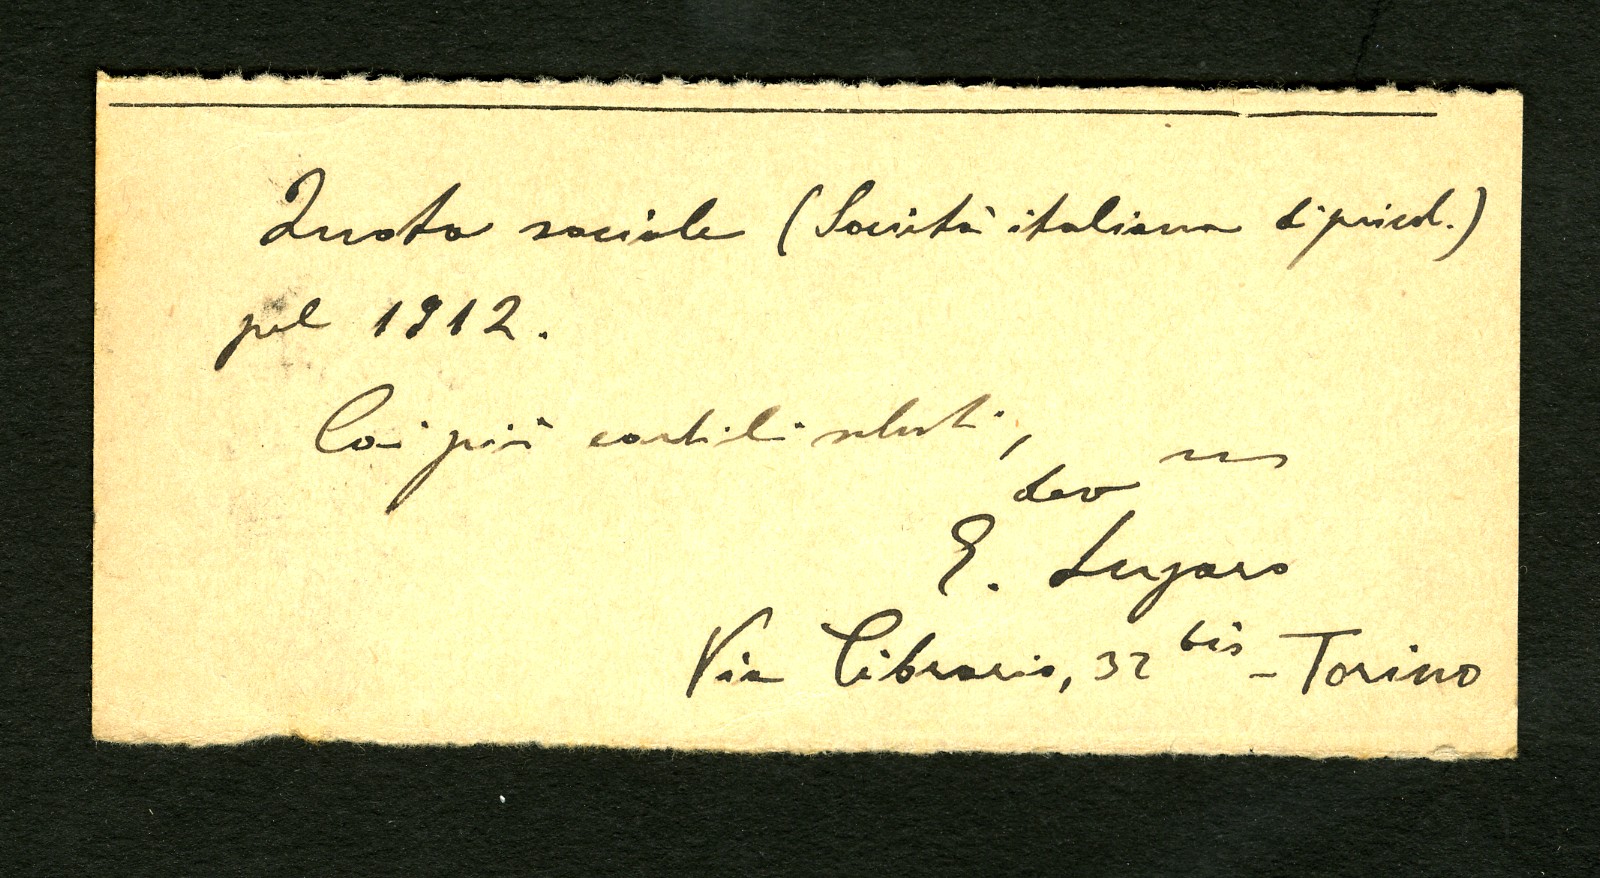 Quota sociale (Società italiana di psicol.)
pel 1912.
Coi più cordiali saluti,
dev mo
E. Lugaro
Via Cibrario, 32 bis - Torino